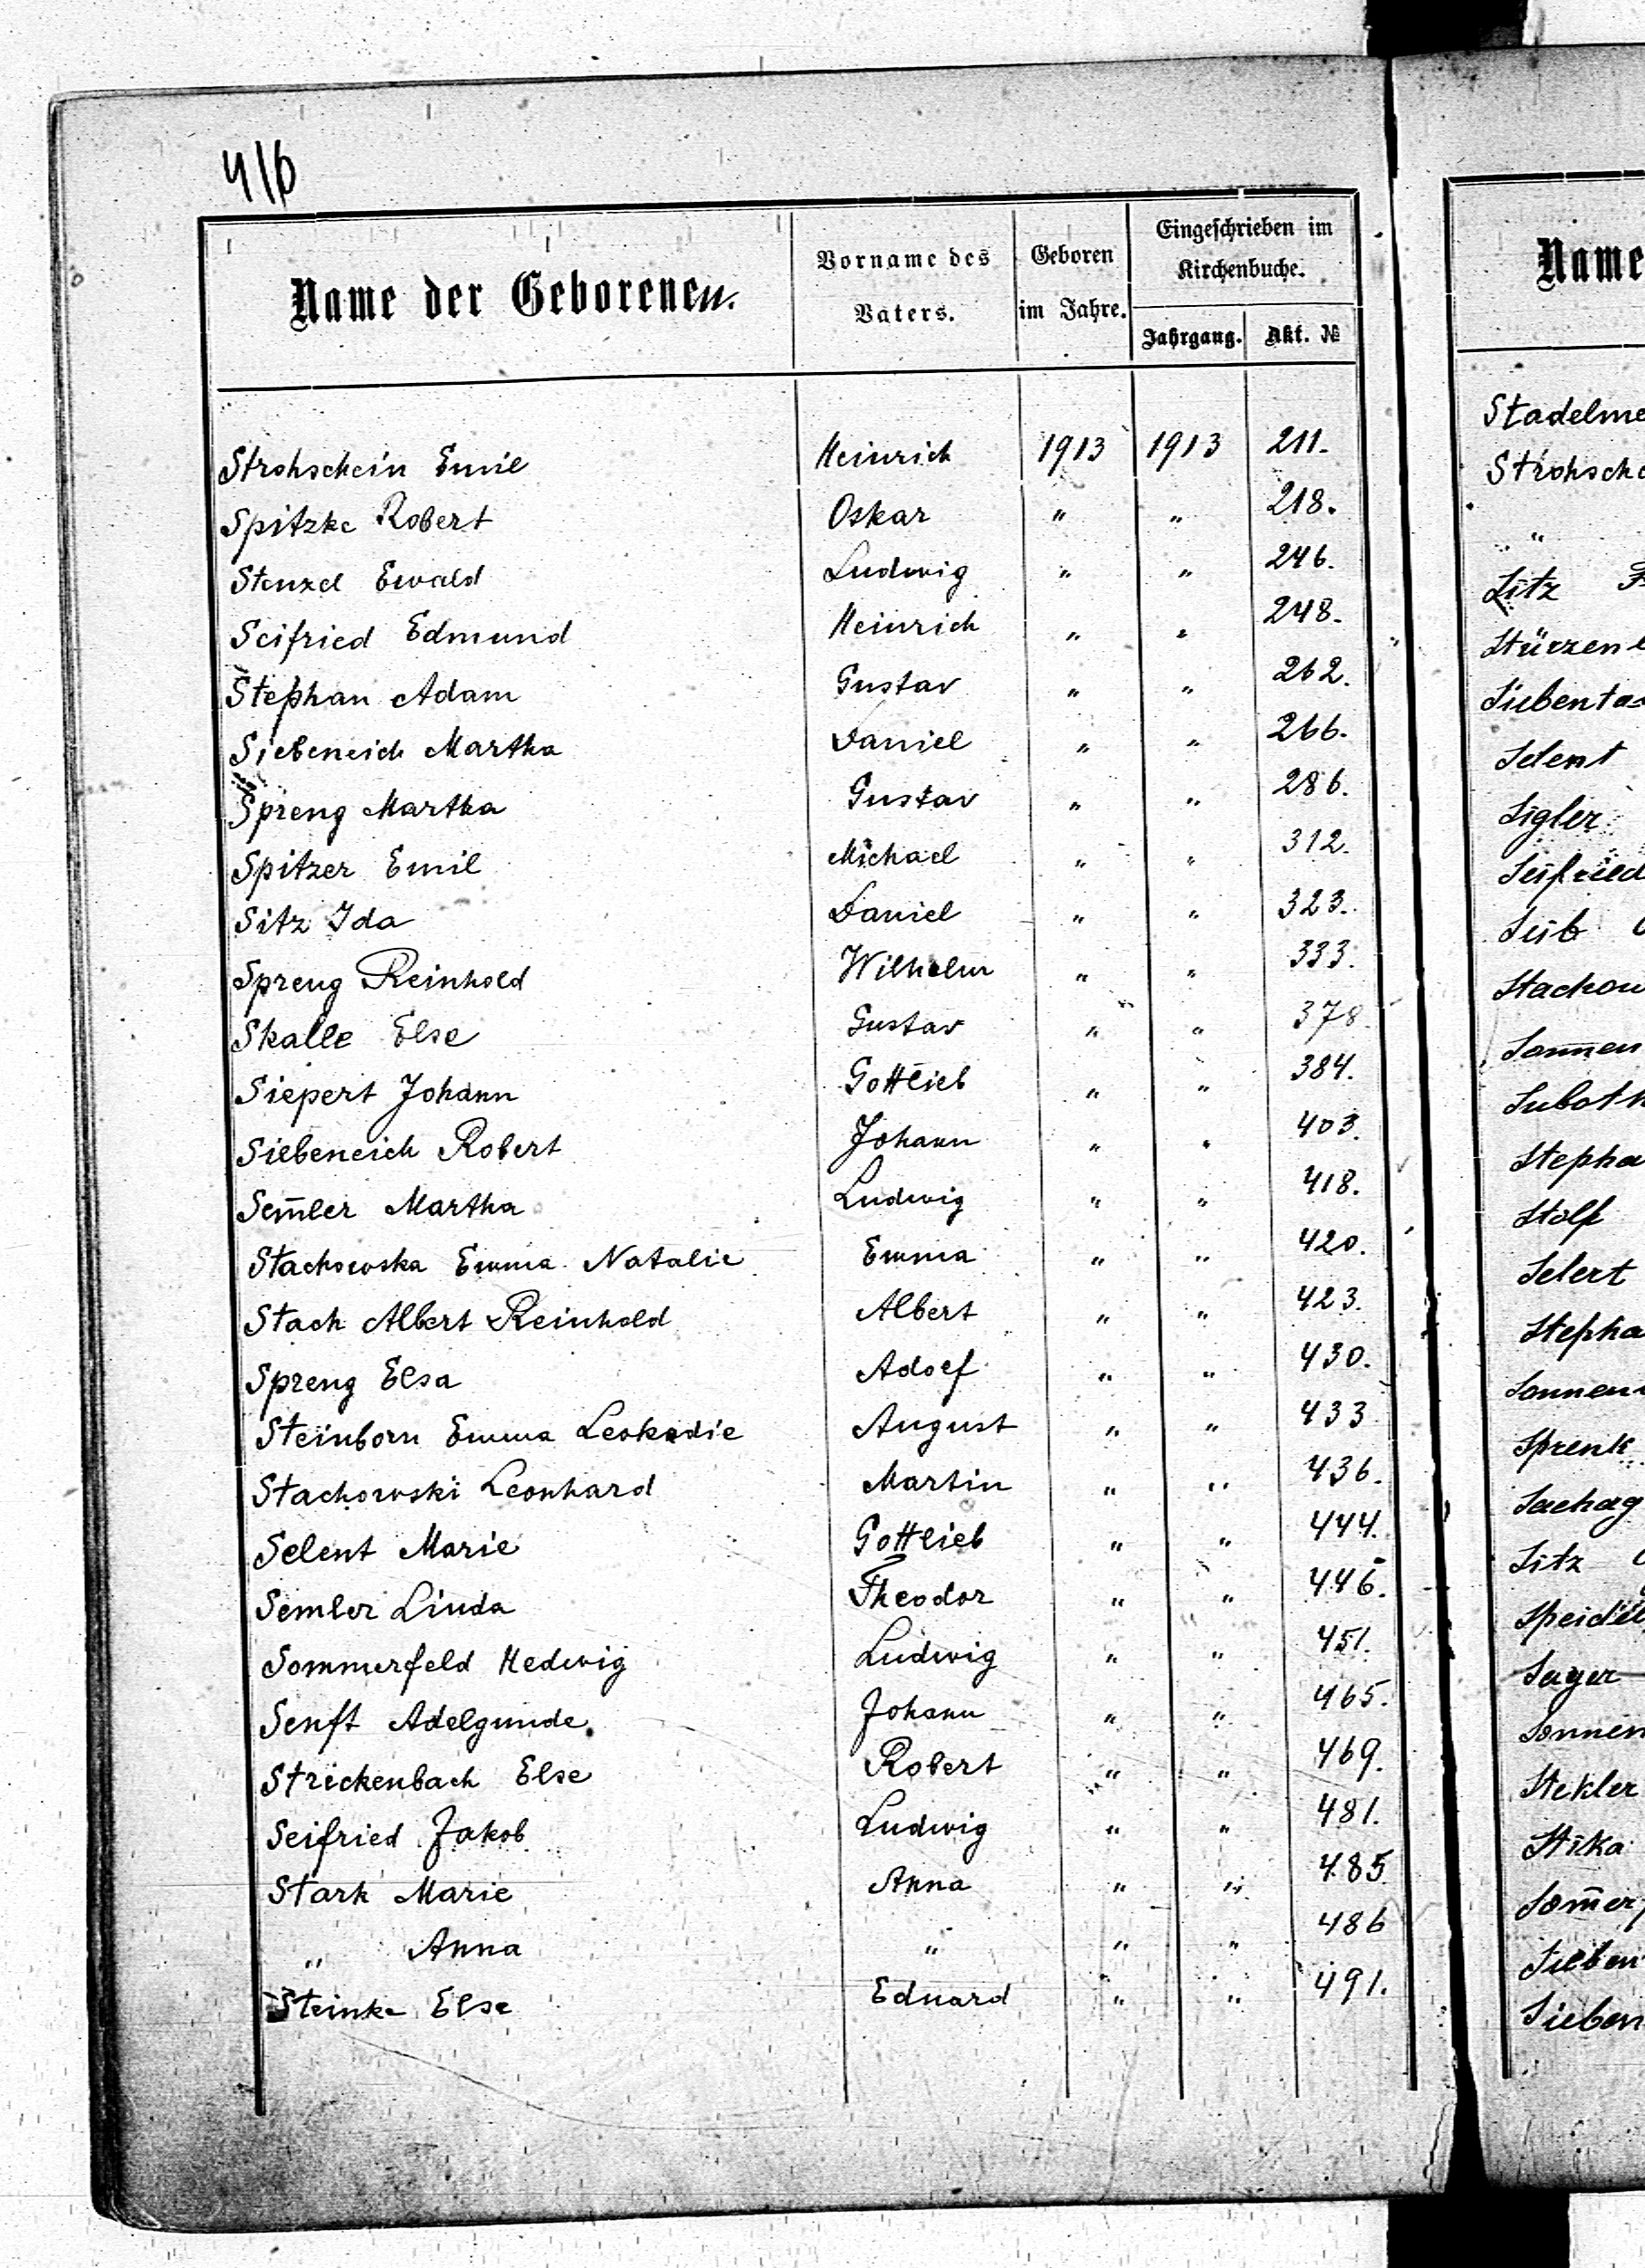 416
Name der Geborenen.
Vorname des Vaters.
Geboren im Jahre.
Eingeschrieben im Kirchenbuche.
Jahrgang.
Akt. №
Strohschein Emil Heinrich 1913 1913 211.
Spitzke Robert Oskar " " 218.
Stenzel Ewald Ludwig " " 246.
Seifried Edmund Heinrich " " 248.
Stephan Adam Gustav " " 262.
Siebeneich Martha Daniel " " 266.
Spreng Martha Gustav " " 286.
Spitzer Emil Michael " " 312.
Sitz Ida Daniel " " 323.
Spreng Reinhold Wilhelm " " 333.
Skalle Else Gustav " " 378.
Siepert Johann Gottlieb " " 384.
Siebeneich Robert Johann " " 403.
Sem̅ler Martha Ludwig " " 418.
Stachowska Emma Natalie Emma " " 420.
Stach Albert Reinhold Albert " " 423.
Spreng Elsa Adolf " " 430.
Steinborn Emma Leokadie August " " 433
Stachowski Leonhard Martin " " 436.
Selent Marie Gottlieb " " 444.
Semler Linda Theodor " " 446.
Sommerfeld Hedwig Ludwig " " 451.
Senft Adelgunde. Johann " " 465.
Strickenbach Else Robert " " 469.
Seifried Jakob Ludwig " " 481.
Stark Marie Anna " " 485
" Anna " " " 486
Steinke Else Eduard " " 491.
Name
Stadelme
Strohsche
"
Sitz
Stürzene
Siebenta
Selent
Sigler
Seifried
Seib
Stachow
Son̅en
Subotk
Stepha
Stolp
Selert
Stepha
Sonnen
Sprenk
Sachag
Sitz
Speidel
Sayer
Sonnen
Stekler
Stika
Som̅er
Sieben
Sieben